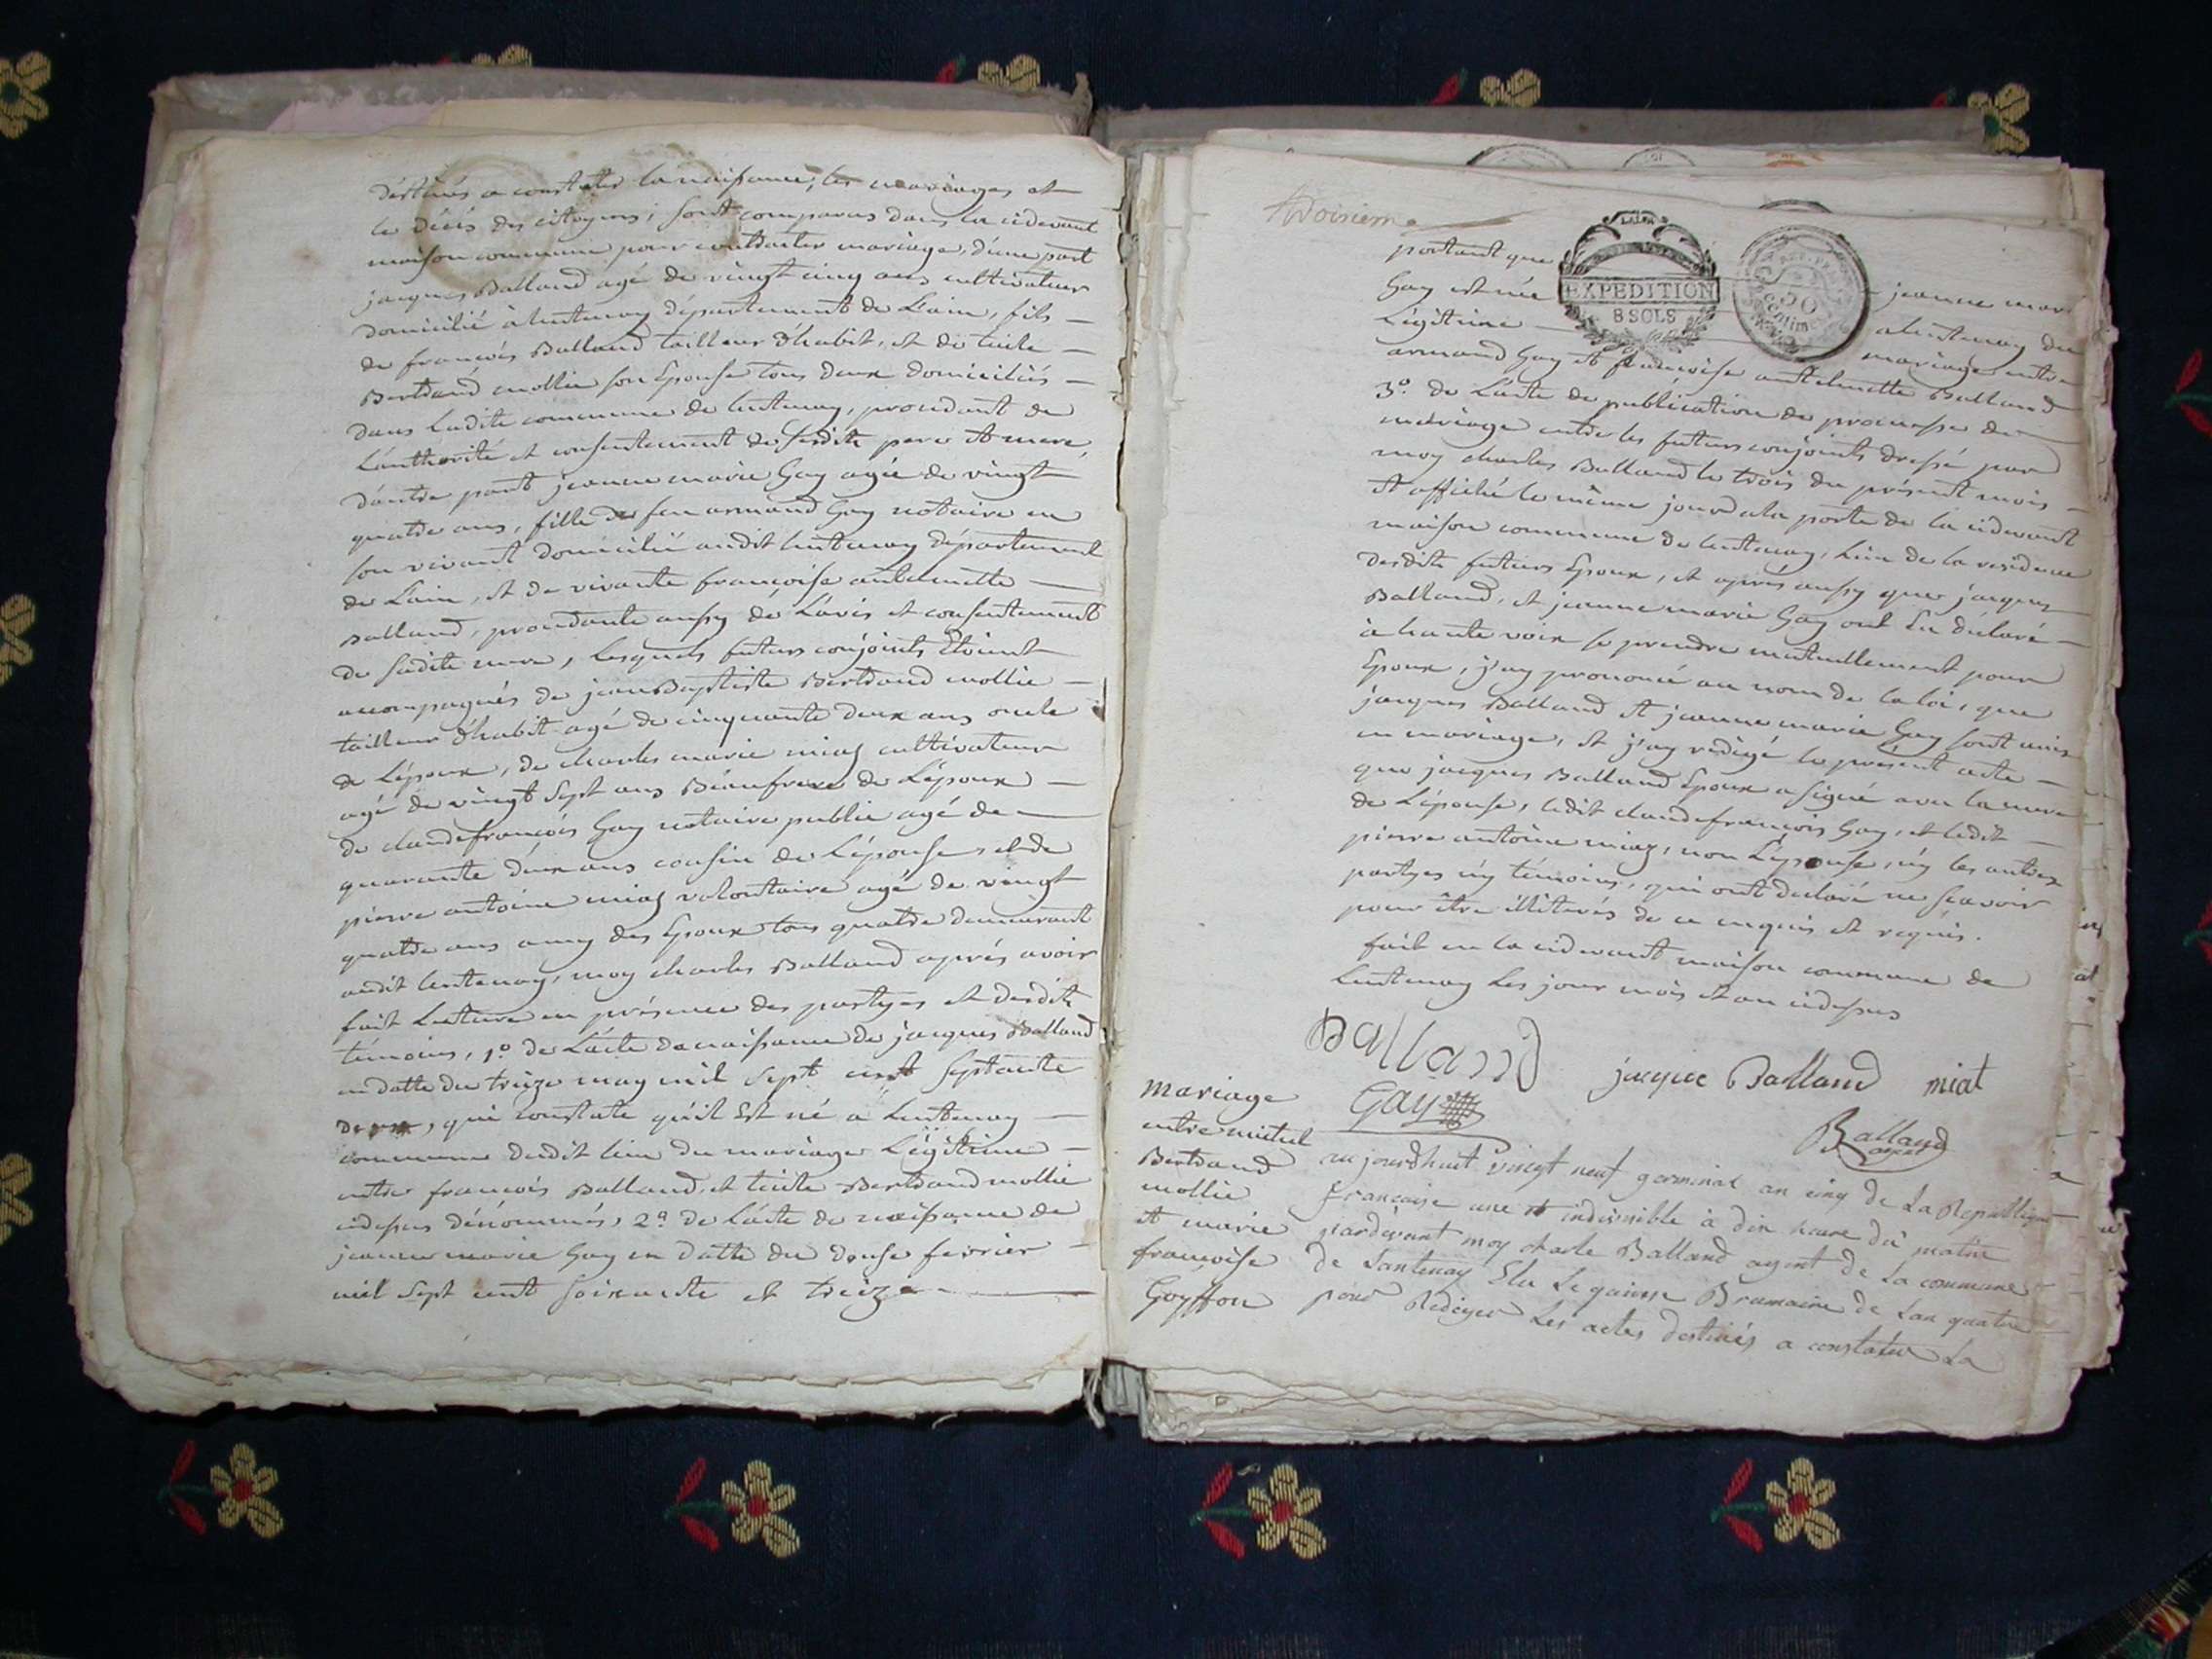 déstinés a constater la naissance, les mariages et
le décès des citoyens; sont comparus dans la cidevant
maison commune pour contracter mariage, d'une part
jacques Balland agé de vingt cinq ans cultivateur
domicilié à lentenay département de L'ain, fils
de françois Balland tailleur d'habit, et de
Bertrand mollie son Epouse tous deux domiciliés
dans Ladite commune de lentenay, procedant de
L'authorité et consentement de sesdits pere et mere,
d'autre part jeanne marie Gay agée de vingt
quatre ans, fille de feu armand Gay notaire en
son vivant domicilié audit lentenay département
de L'ain, et de vivante françoise antelmette
Balland, procedante aussy de L'avis et consentement
de sadite mere, lesquels futurs conjoints Etoient
accompagnés de jean Baptiste Bertrand mollie
tailleur d'habit agé de cinquante deux ans oncle
de L'époux, de charles marie miaz cultivateur
agé de vingt sept ans Béaufrere de L'époux
de claude françois Gay notaire public agé de
quarante deux ans cousin de L'épouse, et de
pierre antoine miaz volontaire agé de vingt
quatre ans amy des Epoux tous quatre demeurant
audit lentenay, moy charles Balland aprés avoir
fait Lecture en présence des partyes et desdits
témoins, 1º de L'acte de naissance de jacques Balland
en datte du treize may mil sept cent septante
deux, qui constate qu'il Est né a Lentenay
commune dudit lieu du mariage Légitime
entre françois Balland, et Bertrand mollie
cidessus dénommés, 2º de L'acte de naissance de
jeanne marie Gay en datte du douse fevrier
mil sept cent soixante et treize
troisieme
portant que jeanne mari
EXPEDITION
8 SOLS
50
centimes
Gay est née a lentenay du
Légitime mariage entre
armand Gay et françoise antelmette Balland
3º. de L'acte de publication de promesse de
mariage entre les futurs conjoints dressé par
moy charles Balland le trois du présent mois
et affiché le même jour a la porte de la cidevant
maison commune de lentenay, lieu de la residence
desdits futurs Epoux, et aprés aussy que jacques
Balland, et jeanne marie Gay ont Eu déclaré
à haute voix se prendre mutuellement pour
Epoux, j'ay prononcé au nom de la loi, que
jacques Balland et jeanne marie Gay sont unis
en mariage, et j'ay redigé le présent acte
que jacques Balland Epoux a signé avec la mere
de L'épouse, ledit claude françois Gay, et ledit
pierre antoine miaz, non L'épouse, ny les autres
partyes ny témoins, qui ont declaré ne scavoir
pour être illiterés de ce enquis et requis.
fait en la cidevant maison commune de
Lentenay les jour mois et an cidessus
Balland
jacque Balland miat
Gay
Balland
agent
mariage
entre michel
Bertrand
mollie
et marie
françoise
Goyffon
aujourdhuit vingt neuf germinal an cinq de La Republique
francaise une et indivisible à dix heure du matin
pardevant moy charle Balland agent de La commune
de Lantenay Elu Le quinse Brumaire de Lan quatre
pour Rediger Les actes destinés a constater La